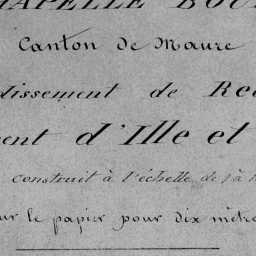 HAPELLE BOU
Canton de Maure
dissement de Re
ent d'Ille et
construit à l'échelle de 1 à
ur le papier pour dix mètre